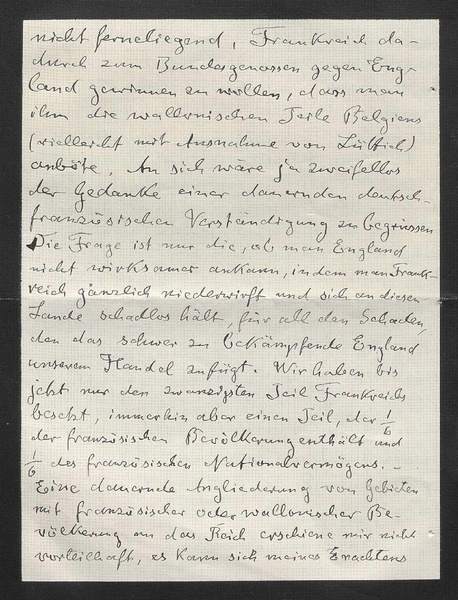 nicht ferneliegend, Frankreich da-
durch zum Bundesgenossen gegen Eng-
land gewinnen zu wollen, dass man
ihm die wallonischen Teile Belgiens
(vielleicht mit Ausnahme von Lüttich)
anböte. An sich wäre ja zweifellos
der Gedanke einer dauernden deutsch-
französischen Verständigung zu begrüssen
Die Frage ist nur die, ob man England
nicht wirksamer ankann, indem man Frank-
reich gänzlich niederwirft und sich an diesem
Lande schadlos hält, für all den Schaden,
den das schwer zu bekämpfende England
unserem Handel zufügt. Wir haben bis
jetzt nur den zwanzigsten Teil Frankreichs
besetzt, immerhin aber einen Teil, der 1/6
der französischen Bevölkerung enthält und
1/6 des französischen Nationalvermögens. -
Eine dauernde Angliederung von Gebieten
mit französischer oder wallonischer Be-
völkerung an das Reich erschiene mir nicht
vorteilhaft, es kann sich meines Erachtens